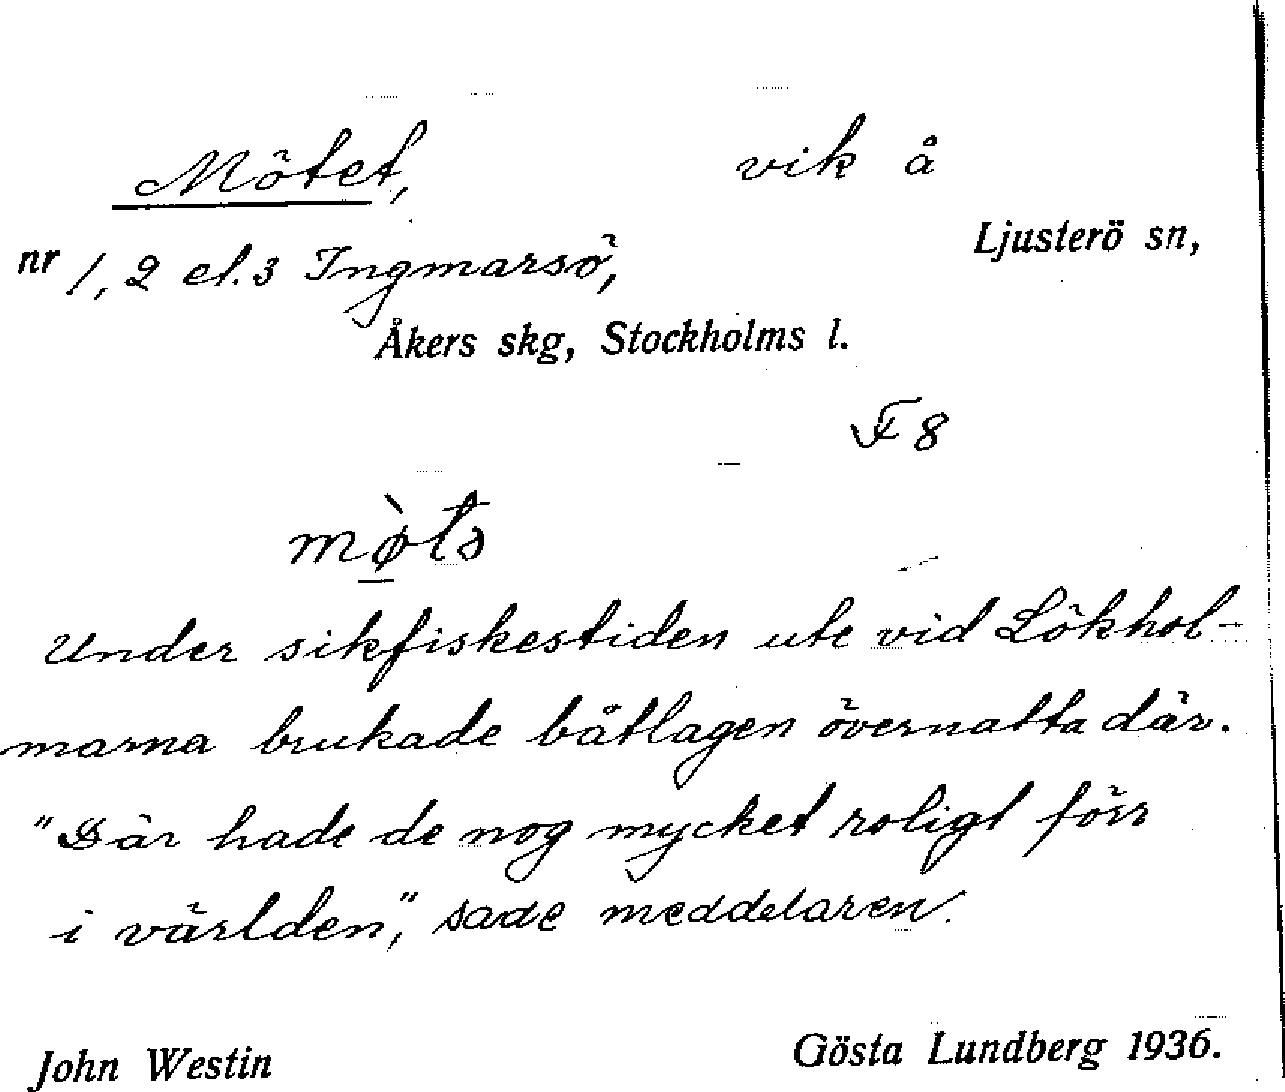 Mötet, vik å
Ljusterö sn,
nr 1, 2 el. 3 Ingmarsö,
Åkers skg, Stockholms l.
F 8
mø̀tə
Under sikfiskestiden ute vid Lökhol-
marna brukade båtlagen övernatta där.
"Där hade de nog mycket roligt förr
i världen", sade meddelaren.
John Westin Gösta Lundberg 1936.